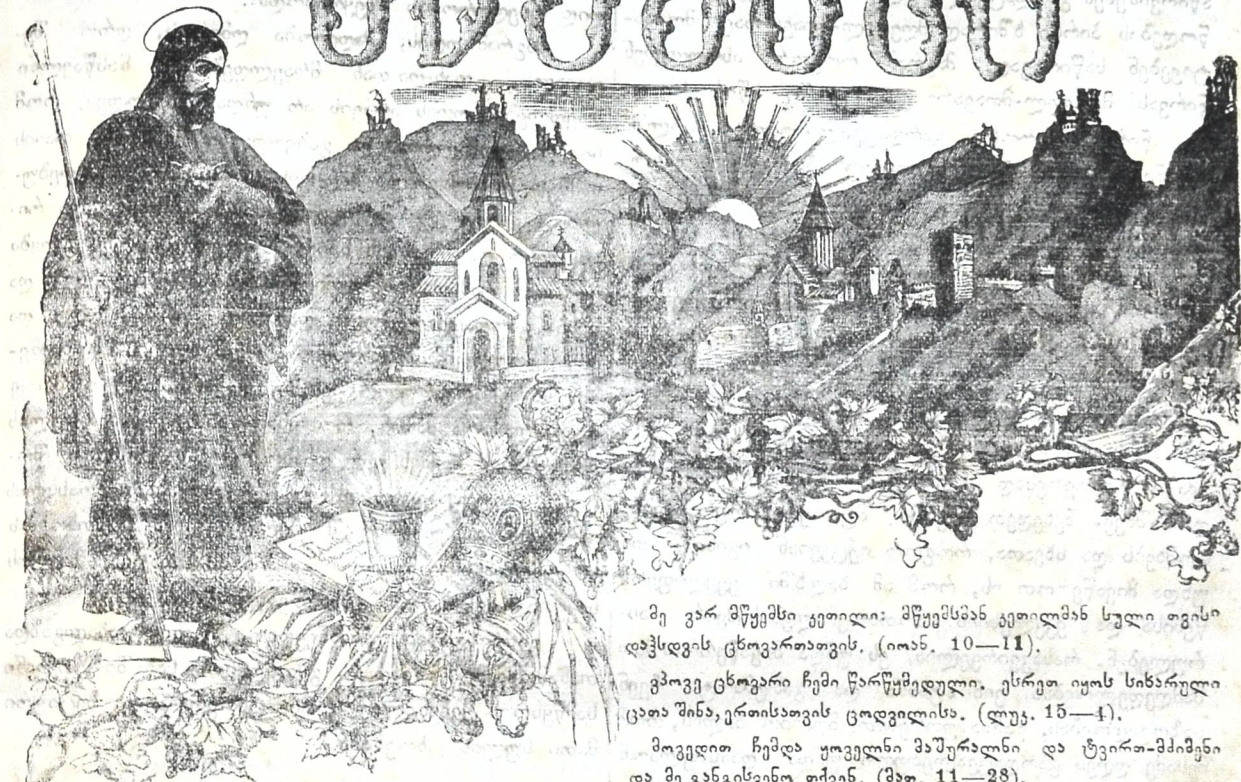 მე ვარ მწყემსი კეთილი: მწყემსმან კეთილმან სული თვისი
დაჰსდგვის ცხოვართათვის. (იოან. 10—11).
ვპოვე ცხოვარი ჩემი წარწყმედული. ესრეთ იყოს სიხარული
ცათა შინა, ერთისათვის ცოდვილისა. (ლუკ. 15—4).
მოვედით ჩემდა ყოველნი მაშურალნი და ტვირთ-მძიმენი
და მე განგისვენო თქვენ. (მათ. 11—28).